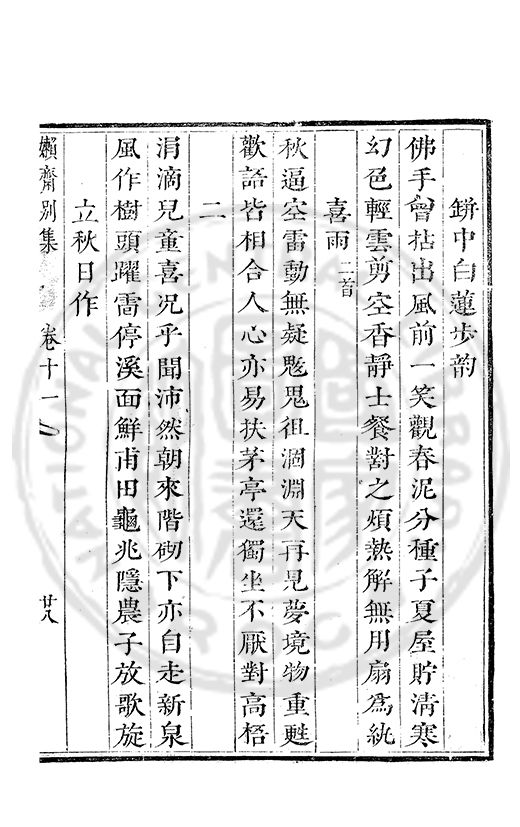 缾中白蓮步韵
佛手曾拈出風前一笑觀春泥分種子夏屋貯清寒
幻色輕雲剪空香靜士餐對之煩熱解無用扇為紈
喜雨二首
秋逼空雷動無疑鬽徂涸淵天再見夢境物重甦
歡語皆相合人心亦易扶茅亭還獨坐不厭對高梧
二
涓滴兒童喜况乎聞沛然朝來階砌下亦自走新泉
風作樹頭躍雷停溪面鮮甫田龜兆隱農子放歌旋
立秋日作
嬾齋別集
卷十一
廿八